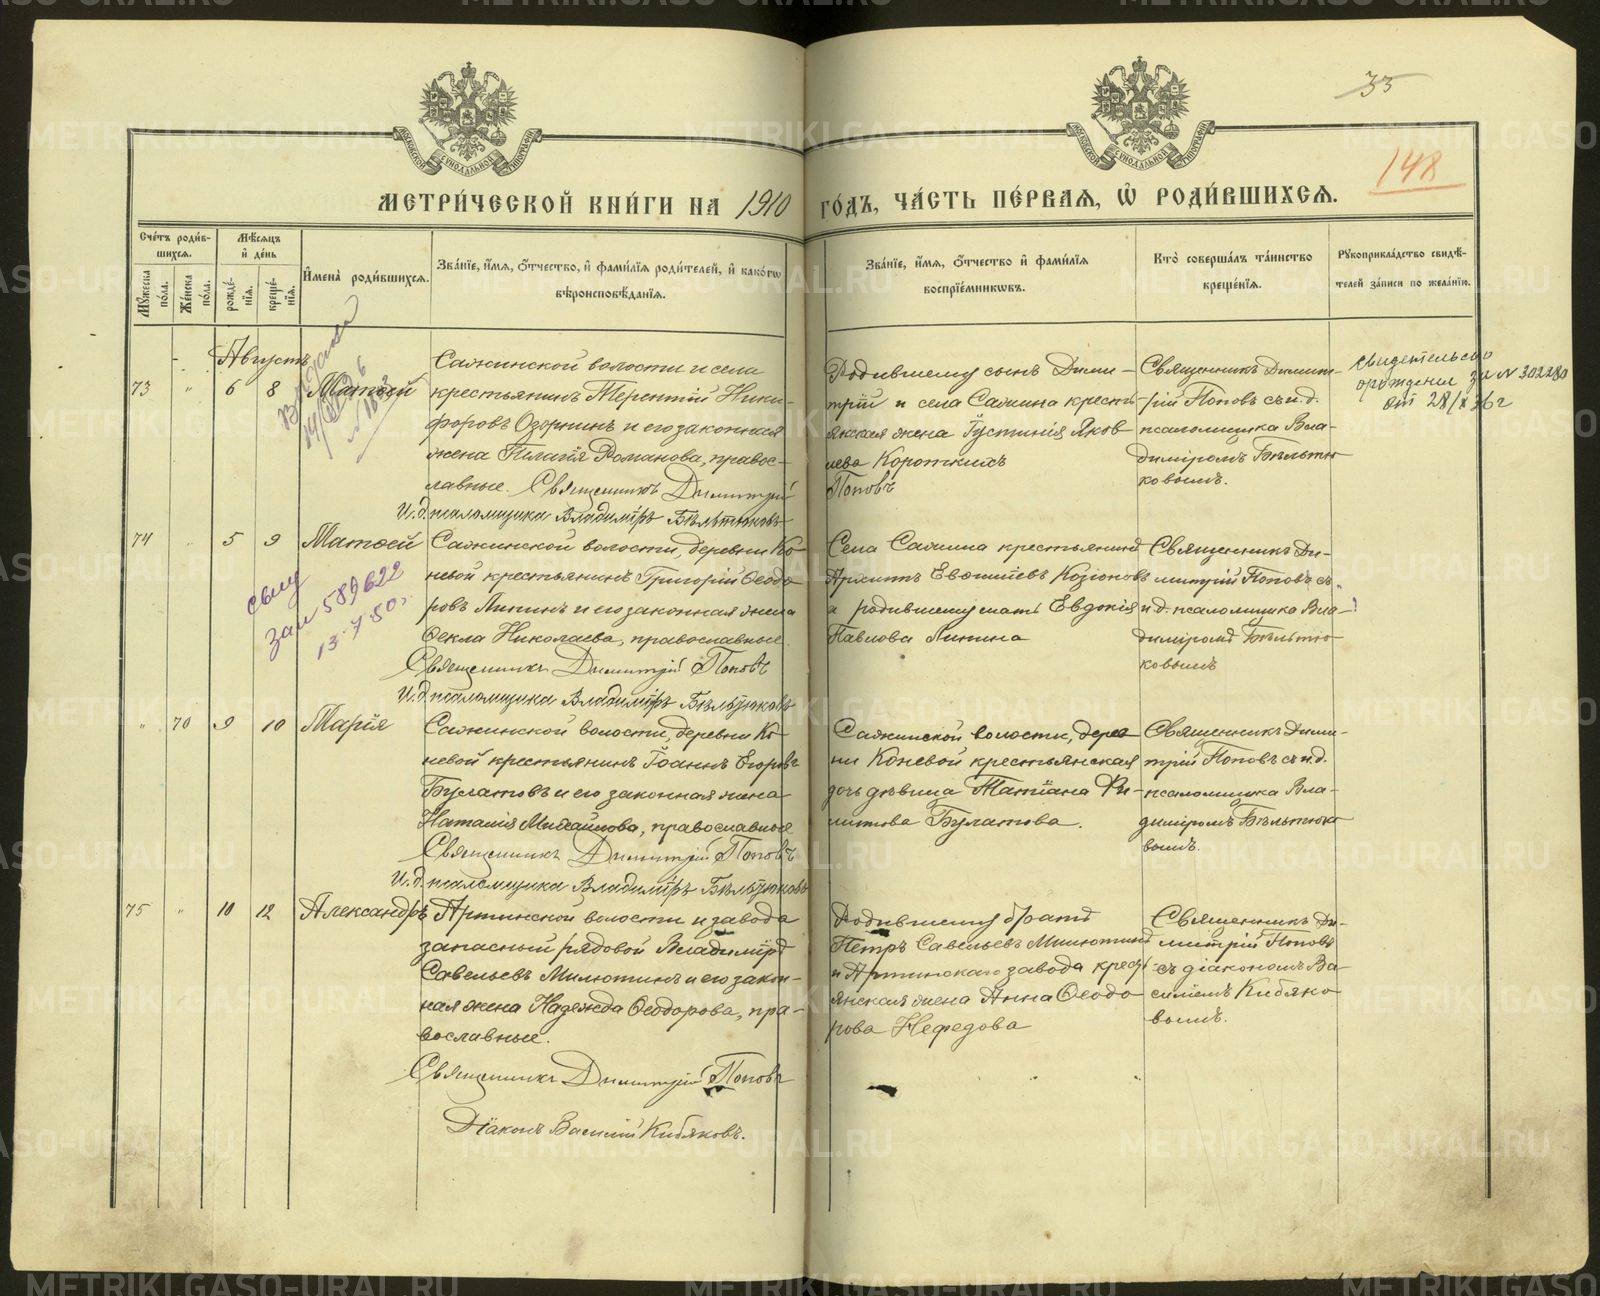 35
148
МЕТРИ́ЧЕСКОЙ КНИ́ГИ НА 1910 ГО́ДЪ, ЧА́СТЬ ПЕ́РВАЯ, Ѽ РОДИ́ВШИХСЯ.
Сче́тъ роди́в-
шихся.
Мꙋжеска по́ла.
Же́нска по́ла.
Мѣ́сяцъ
и҆ де́нь
рожде́-
нїя.
креще́-
нїя.
И҆мена̀ роди́вшихся.
Зва́нїе, и҆́мя, ѻ҆́тчество, и҆ фами́лїя роди́телей, и҆ како́гѡ
вѣроисповѣ́данїя.
Зва́нїе, и҆́мя, ѻ҆́тчество и҆ фами́лїя
воспрїе́мникѡвъ.
Кто̀ соверша́лъ та́инство
креще́нїя.
Рꙋкоприкла́дство свидѣ́-
телей за́писи по жела́нїю.
Августъ
73 " 6 8 Матѳей
Сажинской волости и села
крестьянинъ Терентій Ники-
форовъ Озорнинъ и его законная
жена Пелагія Романова, правос-
лавные. Священникъ Димитрій
Поповъ
И.д. псаломщика Владиміръ Бѣльтюковъ
Родившему сынъ Дими-
трій и села Сажина кресть-
янская жена Іустинія Яков-
лева Короткихъ
Священникъ Димит-
рій Поповъ съ и.д.
псаломщика Вла-
диміромъ Бѣльтю
ковымъ.
свидетельство
о рождении за № 302280
от 28/X 36 г
74 " 5 9 Матѳей
свид
за № 589622
13-7-50 г.
Сажинской волости, деревни Ко-
невой крестьянинъ Григорій Ѳеодо
ровъ Липинъ и его законная жена
Ѳекла Николаева, православные.
Священникъ Димитрій Поповъ
И.д. псаломщика Владиміръ Бѣльтюковъ
Села Сажина крестьянинъ
Архипъ Евѳимiевъ Козіоновъ
и родившему мать Евдокія
Павлова Липина
Священникъ Ди-
митрій Поповъ съ
и.д. псаломщика Вла-
диміромъ Бѣльтю
ковымъ
" 70 9 10 Марія
Сажинской волости, деревни Ко-
невой крестьянинъ Іоаннъ Егоровъ
Булатовъ и его законная жена
Наталія Михайлова, православные
Священникъ Димитрій Поповъ
И.д. псаломщика Владиміръ Бѣльтюковъ
Сажинской волости, дерев
ни Коневой крестьянская
дочь дѣвица Татіана Фи-
липова Булатова.
Священникъ Дими-
трій Поповъ съ и.д.
псаломщика Вла-
диміромъ Бѣльтюко
вымъ.
75 " 10 12 Александръ
Артинской волости и завода
запасный рядовой Владиміръ
Савельевъ Милютинъ и его закон-
ная жена Надежда Ѳеодорова, пра-
вославные.
Священникъ Димитрій Поповъ
Діаконъ Василій Кибяковъ.
Родившему братъ
Петръ Савельевъ Милютинъ
и Артинскаго завода крест
янская жена Анна Ѳеодо
рова Нефедова
Священникъ Ди-
митрій Поповъ
съ діакономъ Ва-
силіемъ Кибяко
вымъ.
METRIKI.GASO-URAL.RU